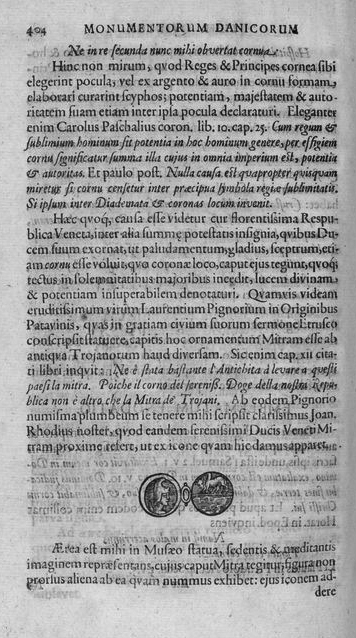 404 MONUMENTORUM DANICORUM
Ne in re secunda nunc mihi obvertat cornua.
Hinc non mirum, qvod Reges & Principes cornea sibi
elegerint pocula, vel ex argento & auro in cornu formam,
elaborari curarint scyphos; potentiam, majestatem & auto-
ritatem suam etiam inter ipsa pocula declaraturi. Eleganter
enim Carolus Paschalius coron. lib. 10. cap. 25. Cum regum &
sublimium hominum sit potentia in hoc hominum genere, per effigiem
cornu significatur summa illa cujus in omnia imperium est, potentia
& autoritas. Et paulo post. Nulla causa est qvapropter qvisqvam
miretur si cornu censetur inter præcipua symbola regiæ sublimitatis.
Si ipsum inter Diademata & coronas locum invenit.
Hæc qvoq; causa esse videtur cur florentissima Respu-
blica Veneta, inter alia summę potestatis insignia, qvibus Du-
cem suum exornat, ut paludamentum, gladius, sceptrum, eti-
am cornu esse voluit, qvo coronæ loco, caput ejus tegunt, qvoq;
tectus in solemnitatibus majoribus incedit, lucem divinam
& potentiam insuperabilem denotaturi. Qvamvis videam
eruditissimum virum Laurentium Pignorium in Originibus
Patavinis, qvas in gratiam civium suorum sermone Etrusco
conscripsit statuere, capitis hoc ornamentum Mitram esse ab
antiqva Trojanorum haud diversam. Sic enim cap. xii cita-
ti libri inqvit: Ne è stata bastante l'Antichita à levare a questi
paesi la mitra. Poiche il corno del sereniss. Doge della nostra Repu-
blica non è altro, che la Mitra de' Trojani. Ab eodem Pignorio
numisma plumbeum se tenere mihi scripsit clarissimus Joan.
Rhodius noster, qvod eandem serenissimi Ducis Veneti Mi-
tram proxime refert, ut ex icone qvam hic damus apparet.
Ærea est mihi in Musæo statua, sedentis & meditantis
imaginem repræsentans, cujus caput Mitra tegitur, figura non
prorsus aliena ab ea qvam nummus exhibet: ejus iconem ad-
dere